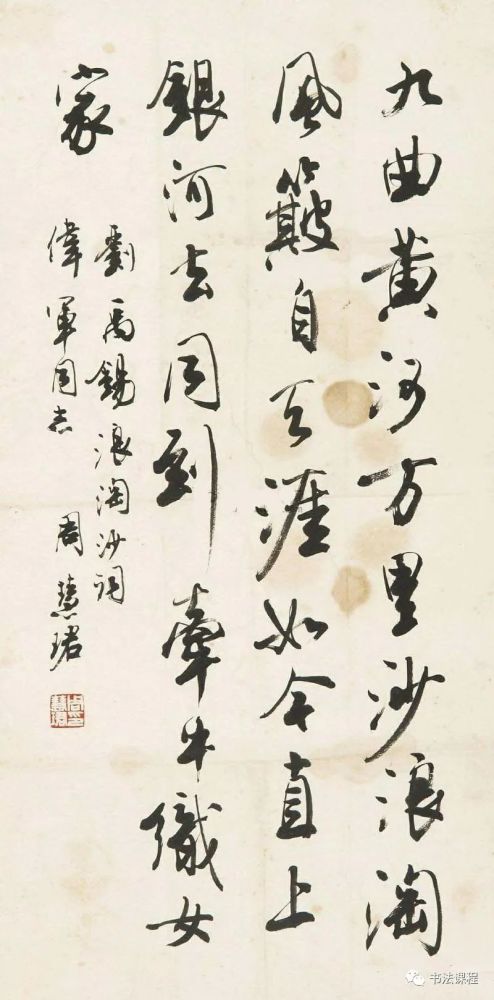 九曲黄河万里沙浪淘
風簸自天涯如今直上
銀河去同到牽牛織女
家
劉禹錫浪淘沙詞
偉軍同志 周慧珺
书法课程